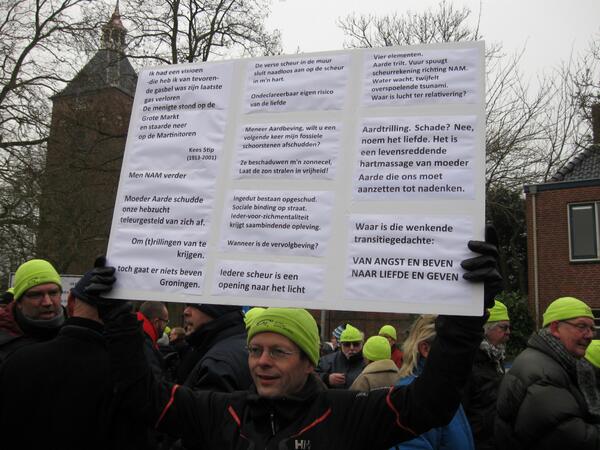 Ik had een visioen
-die heb ik van tevoren-
de gasbel was zijn laatste
gas verloren
De menigte stond op de
Grote Markt
en staarde neer
op de Martinitoren
Kees Stip
(1913-2001)
Men NAM verder
Moeder Aarde schudde
onze hebzucht
teleurgesteld van zich af.
Om (t)rillingen van te
krijgen.
toch gaat er niets beven
Groningen.
De verse scheur in de muur
sluit naadloos aan op de scheur
in m'n hart.
Ondeclareerbaar eigen risico
van de liefde
Meneer Aardbeving, wilt u een
volgende keer mijn fossiele
schoorstenen afschudden?
Ze beschaduwen m'n zonnecel,
Laat de zon stralen in vrijheid!
Ingedut bestaan opgeschud.
Sociale binding op straat.
Ieder-voor-zichmentaliteit
krijgt saambindende optaven.
Wanneer is de vervolgbeving?
Iedere scheur is een
opening naar het licht
Vier elementen.
Aarde trilt. Vuur spuugt
scheurrekening richting NAM.
Water wacht, twijfelt
overspoelende tsunami.
Waar is lucht ter relativering?
Aardtrilling. Schade? Nee,
noem het liefde. Het is
een levensreddende
hartmassage van moeder
Aarde die ons moet
aanzetten tot nadenken.
Waar is die wenkende
transitiegedachte:
VAN ANGST EN BEVEN
NAAR LIEFDE EN GEVEN
HH